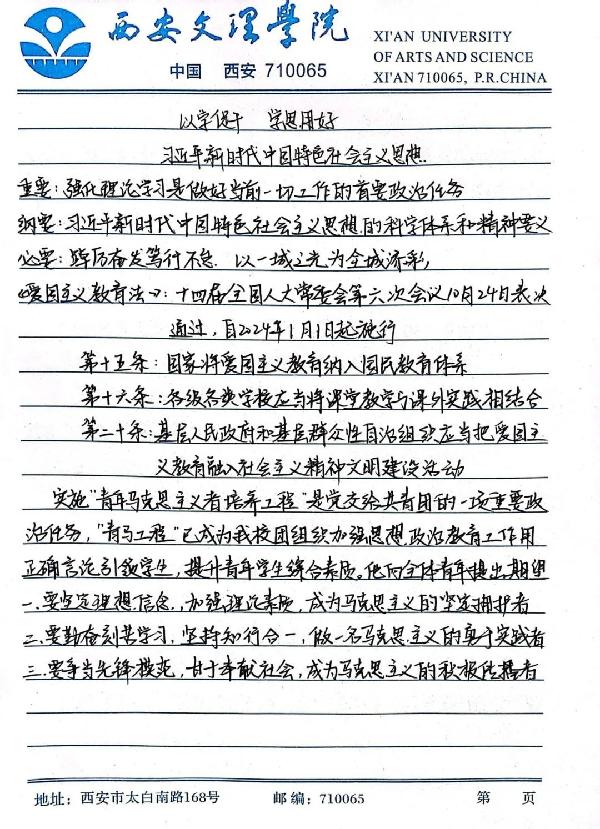 西安文理學院
中国 西安 710065
XI'AN UNIVERSITY
OF ARTS AND SCIENCE
XI'AN 710065, P.R.CHINA
以学促干 学思用好
习近平新时代中国特色社会主义思想
重要：强化理论学习是做好当前一切工作的首要政治任务
纲要：习近平新时代中国特色社会主义思想的科学体系和精神要义
必要：踔厉奋发笃行不怠 以一域之光为全域添彩
《爱国主义教育法》：十四届全国人大常委会第六次会议10月24日表决
通过，自2024年1月1日起施行
第十五条：国家将爱国主义教育纳入国民教育体系
第十六条：各级各类学校应当将课堂教学与课外实践相结合
第二十条：基层人民政府和基层群众性自治组织应当把爱国主
义教育融入社会主义精神文明建设活动
实施"青年马克思主义者培养工程"是党交给共青团的一项重要政
治任务，"青马工程"已成为我校团组织加强思想政治教育工作用
正确言论引领学生，提升青年学生综合素质。他向全体青年提出期望
一.要坚定理想信念，加强理论素质，成为马克思主义的坚定拥护者
二.要勤奋刻苦学习，坚持知行合一，做一名马克思主义的勇于实践者
三.要争当先锋模范，甘于奉献社会，成为马克思主义的积极传播者
地址：西安市太白南路168号 邮编：710065 第 页